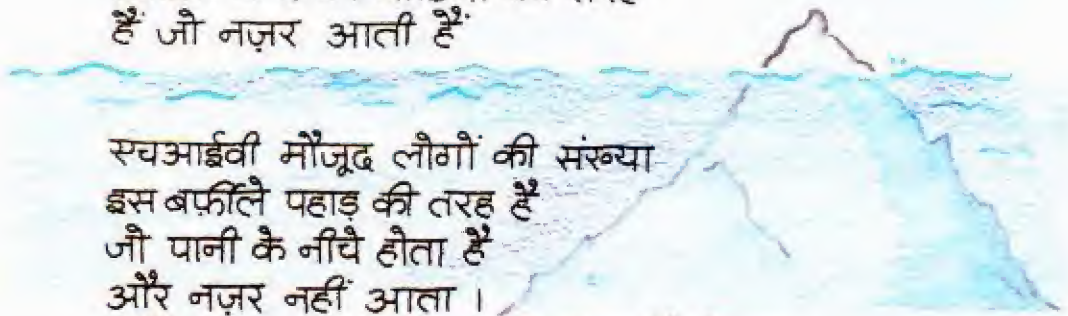 हैं जो नज़र आती हैं
एचआईवी मौजूद लोगों की संख्या
इस बर्फ़ीले पहाड़ की तरह है
जो पानी के नीचे होता है
और नज़र नहीं आता ।